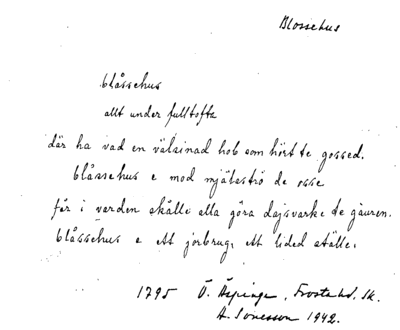 Blossehus
blåssehus
allt under fulltofta
där ha vad en välsinad hob som hört te gossed.
blåssehus e mod mjälaströ de osse
får i varden skälle ella göra dajsvarke te gåuren.
blåssehus e ett jorbrug, ett lided ställe.
1795 Ö. Äspinge, Frosta hd, Sk.
A. Sonesson 1942.